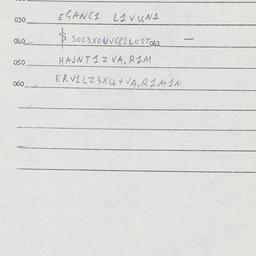 030 EGANC1 L1VUN1
040 $ SOC3XONVGP1LOST —
050 HAJNT1Z VA,R1M
060 ERV1LZ3XL+VA,R1M1N